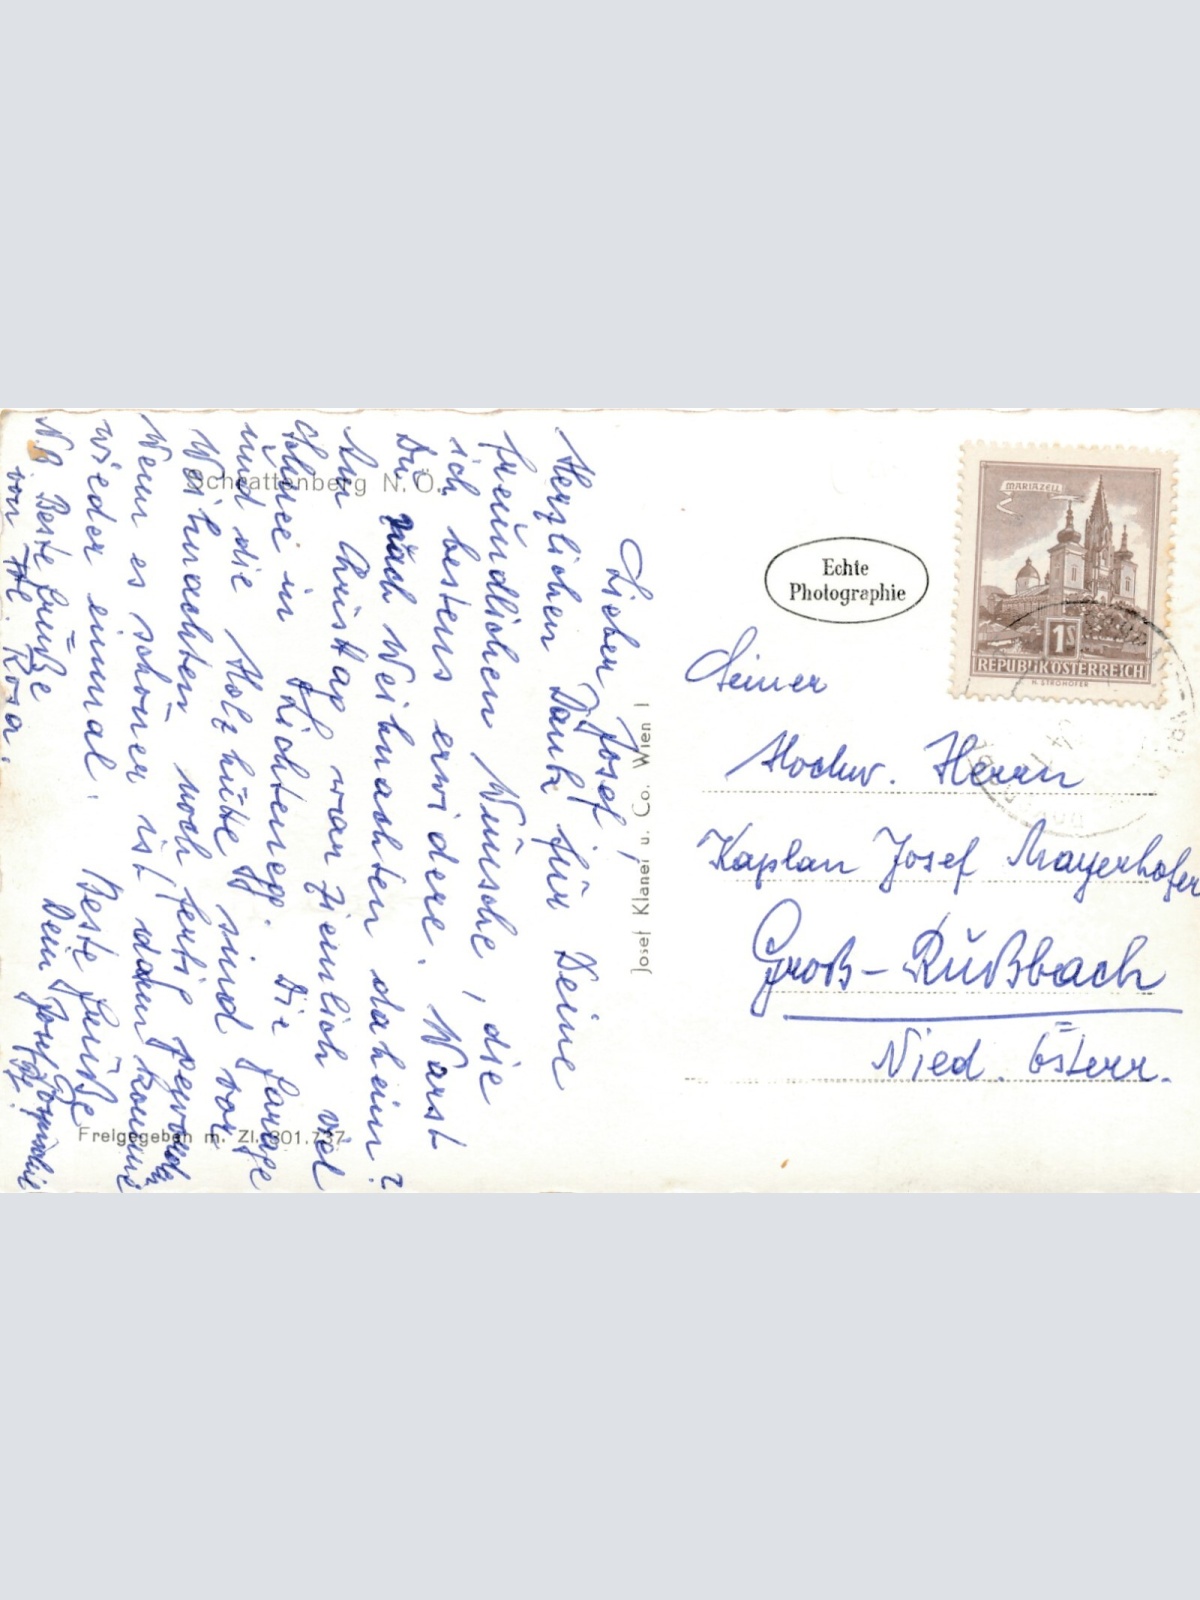 Schrattenberg N. Ö.
Lieber Josef,
Herzlichen Dank für Deine
freundlichen Wünsche, die
ich bestens erwidere. Warst
Du nach Weihnachten daheim?
Am Christtag war ziemlich viel
Schnee in Lichtenegg. Die Garage
und die Holzhütte sind vor
Weihnachten noch fertig geworden
Wenn es schöner ist dann komme
wieder einmal. Beste Grüße
Dein Josef
NB Beste Grüße
von Rosa.
Freigegeben m. Zl. 301.737
Josef Klaner u. Co. Wien I
Echte
Photographie
MARIAZELL
1S
REPUBLIK ÖSTERREICH
H. STROHOFER
Seiner
Hochw. Herrn
Kaplan Josef Mayerhofer
Groß-Rußbach
Nied. Österr.